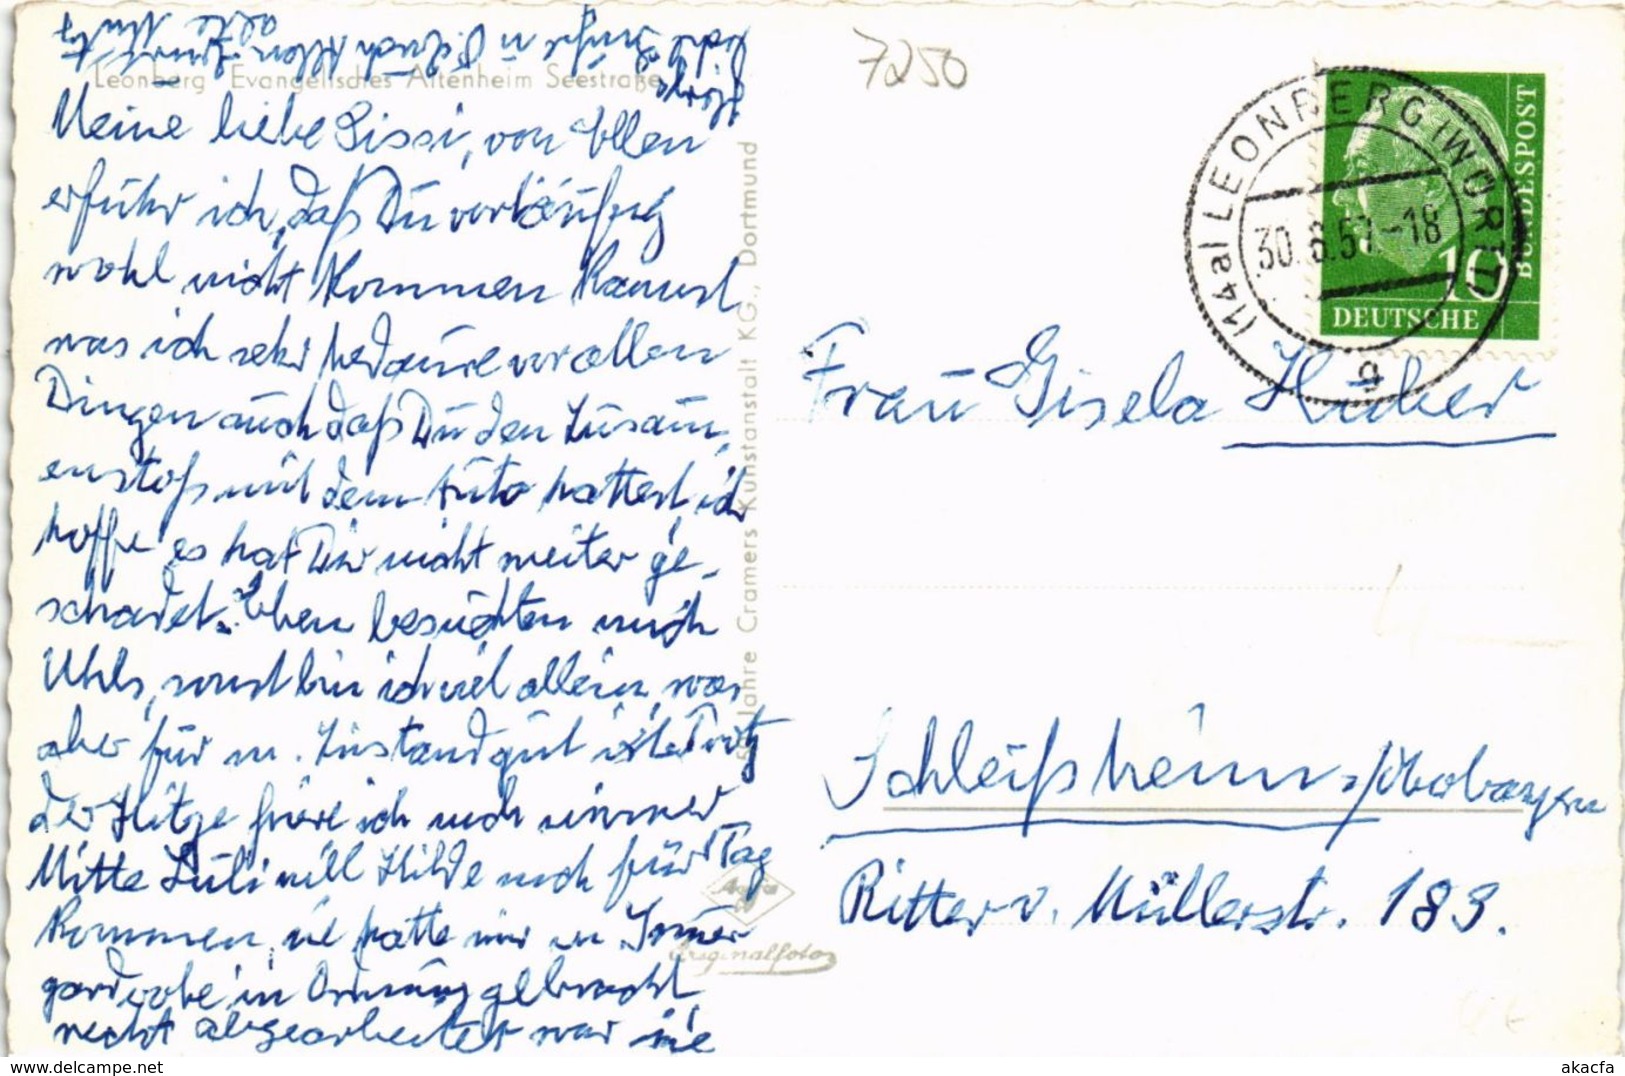 7250
Leonberg Evangelisches Altenheim Seestraße
Meine liebe Sissi, von Ellen
erfuhr ich, daß Du vorläufig
wohl nicht kommen kannst
was ich sehr bedaure vor allen
Dingen auch daß Du den Zusam
enstoß mit dem Auto hattest, ich
hoffe es hat Dir nicht weiter ge-
schadet. Eben besuchten mich
Uhls, sonst bin ich viel allein, was
aber für m. Zustand gut ist. Trotz
der Hitze friere ich noch immer
Mitte Juli will Hilde noch für Tag
kommen, sie hatte mir m
garderobe in Ordnung gebracht
recht abgearbeitet war sie
50 Jahre Cramers Kunstanstalt KG., Dortmund
Agfa
Originalfoto
(14a) LEONBERG (WÜRTT)
30.6.5 -18
b
DEUTSCHE
BUNDESPOST
10
Frau Gisela Huber
Schleißheim/Oberbayern
Ritter v. Müllerstr. 183.
akacfa